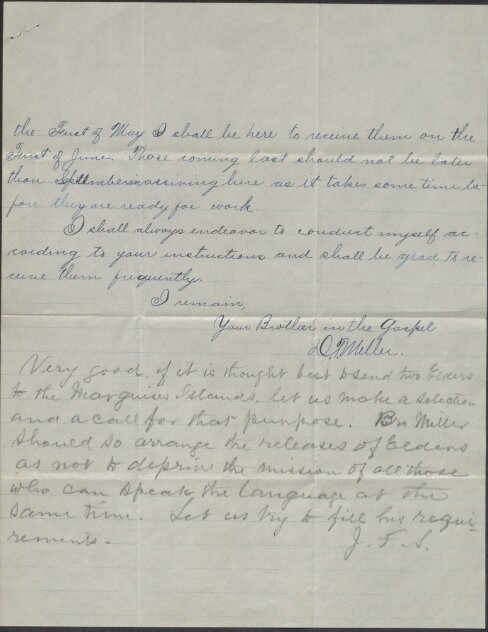 the First of May I shall be here to receive them on the
First of June. Those coming last should not be later
than September in arriving here as it takes some time be-
fore they are ready for work.
I shall always endeavor to conduct myself ac-
cording to your instructions and shall be glad to re-
ceive them frequently.
I remain,
Your Brother in the Gospel
Miller.
Very good, if it is thought best to send two Elders
to the Marquise Islands, let us make a selection
and a call for that purpose. Bro Miller
should so arrange the releases of Elders
as not to deprive the mission of all those
who can speak the language at the
same time. Let us try to fill his requi-
rements.
J. F. S.